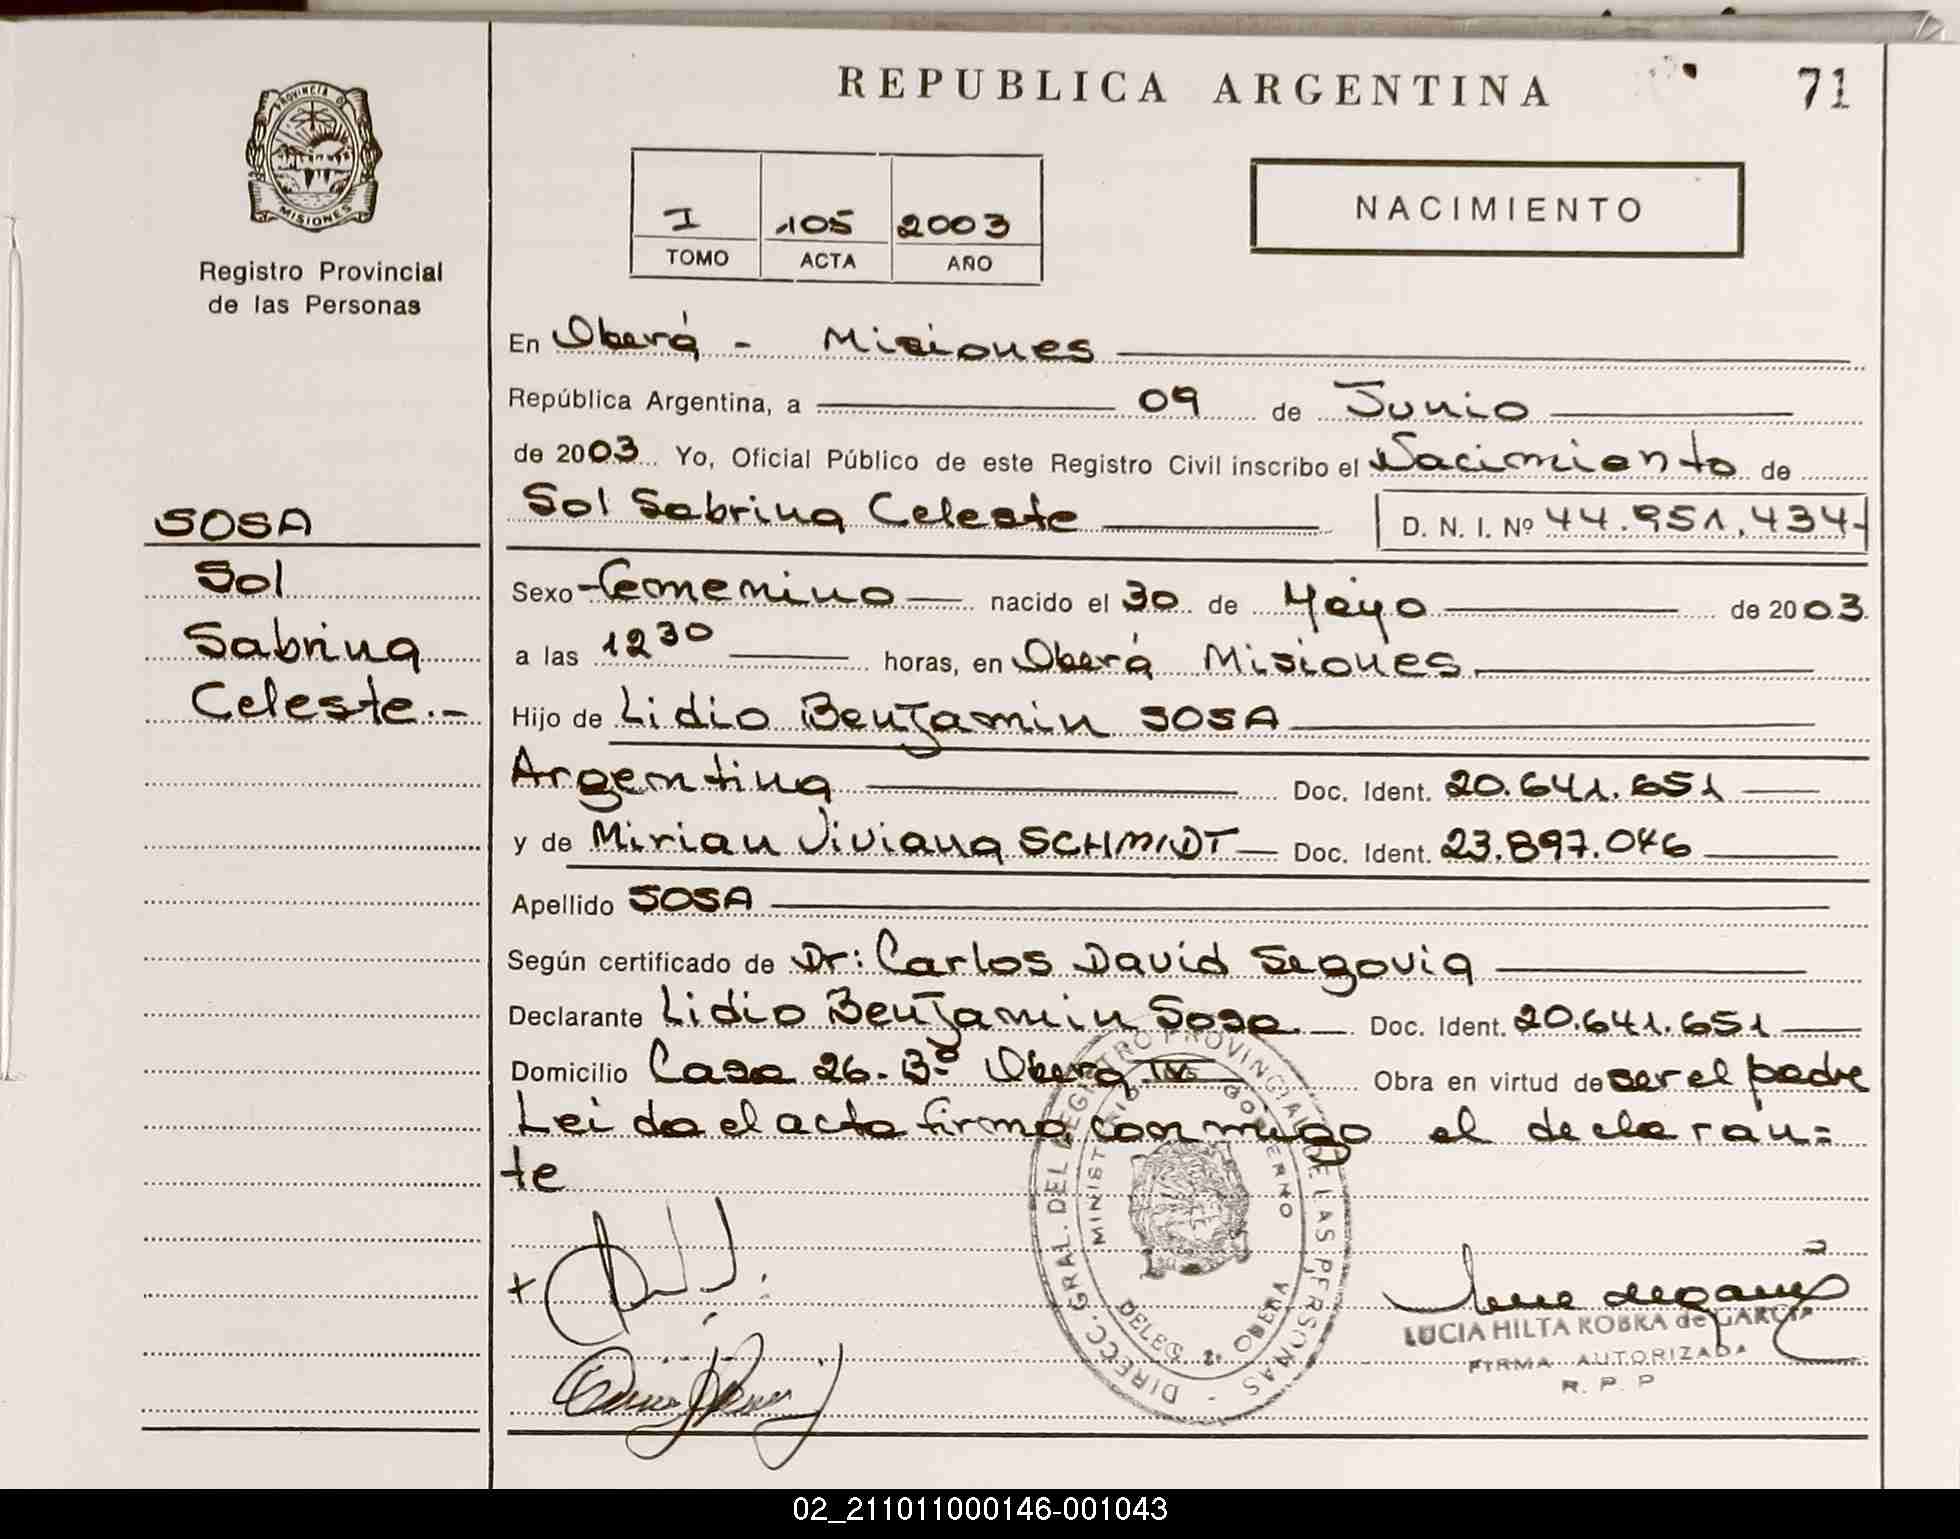 REPUBLICA ARGENTINA
71
PROVINCIA DE
MISIONES
Registro Provincial
de las Personas
I 105 2003
TOMO ACTA AÑO
NACIMIENTO
En Oberá - Misiones
República Argentina, a 09 de Junio
de 2003 Yo, Oficial Público de este Registro Civil inscribo el Nacimiento de
Sol Sabrina Celeste D. N. I. Nº 44.951.434-
SOSA
Sol
Sabrina
Celeste.-
Sexo Femenino nacido el 30 de Mayo de 2003
a las 12 30 horas, en Oberá Misiones
Hijo de Lidio Benjamin SOSA
Argentina Doc. Ident. 20.641.651
y de Mirian Viviana SCHMIDT Doc. Ident. 23.897.046
Apellido SOSA
Según certificado de Dr: Carlos David Segovia
Declarante Lidio Benjamin Sosa Doc. Ident. 20.641.651
Domicilio Casa 26. Bº Oberá IV Obra en virtud de ser el padre
Leida el acta firma conmigo el declaran=
te
DIRECC. GRAL. DEL REGISTRO PROVINCIAL DE LAS PERSONAS
MINISTERIO GOBIERNO
DELEG. OBERA
LUCIA HILTA KOBRA de GARCIA
FIRMA AUTORIZADA
R. P. P
02_211011000146-001043